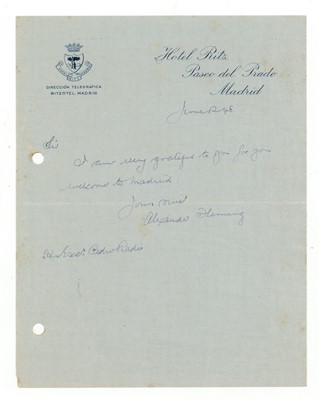 Hotel Ritz
Paseo del Prado
Madrid
DIRECCIÓN TELEGRÁFICA
RITZOTEL MADRID
June 48
Sir
I am very grateful to you for your
welcome to Madrid
Yours
Alexander Fleming
Pedro